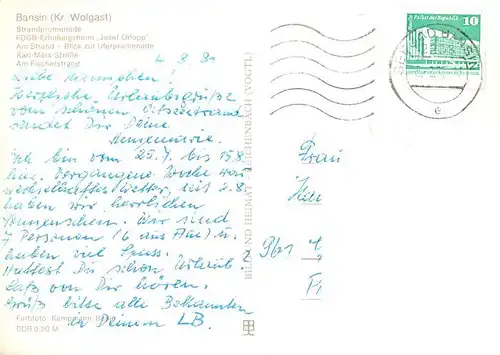 Bansin (Kr. Wolgast)
Strandpromenade
FDGB-Erholungsheim „Josef Orlopp"
Am Strand – Blick zur Uferpromenade
Karl-Marx-Straße
Am Fischerstrand
4. 8. 81
Liebe
Herzliche Urlaubsgrüße
vom schönen Ostseestrand
sendet Dir Deine
Annemarie.
Ich bin vom 25.7. bis 15.8.
hier. Vergangene Woche war
wechselhaftes Wetter, seit 2.8.
haben wir herrlichen
Sonnenschein. Wir sind
7 Personen (6 aus Aue) u.
haben viel Spass.
Hattest Du schon Urlaub?
Lass von Dir hören.
Grüß bitte alle Bekannten
in Deinem LB.
Farbfoto: Kampmann,
DDR 0,20 M
BILD UND HEIMAT REICHENBACH (VOGTL)
Palast der Republik
10
Frau
961